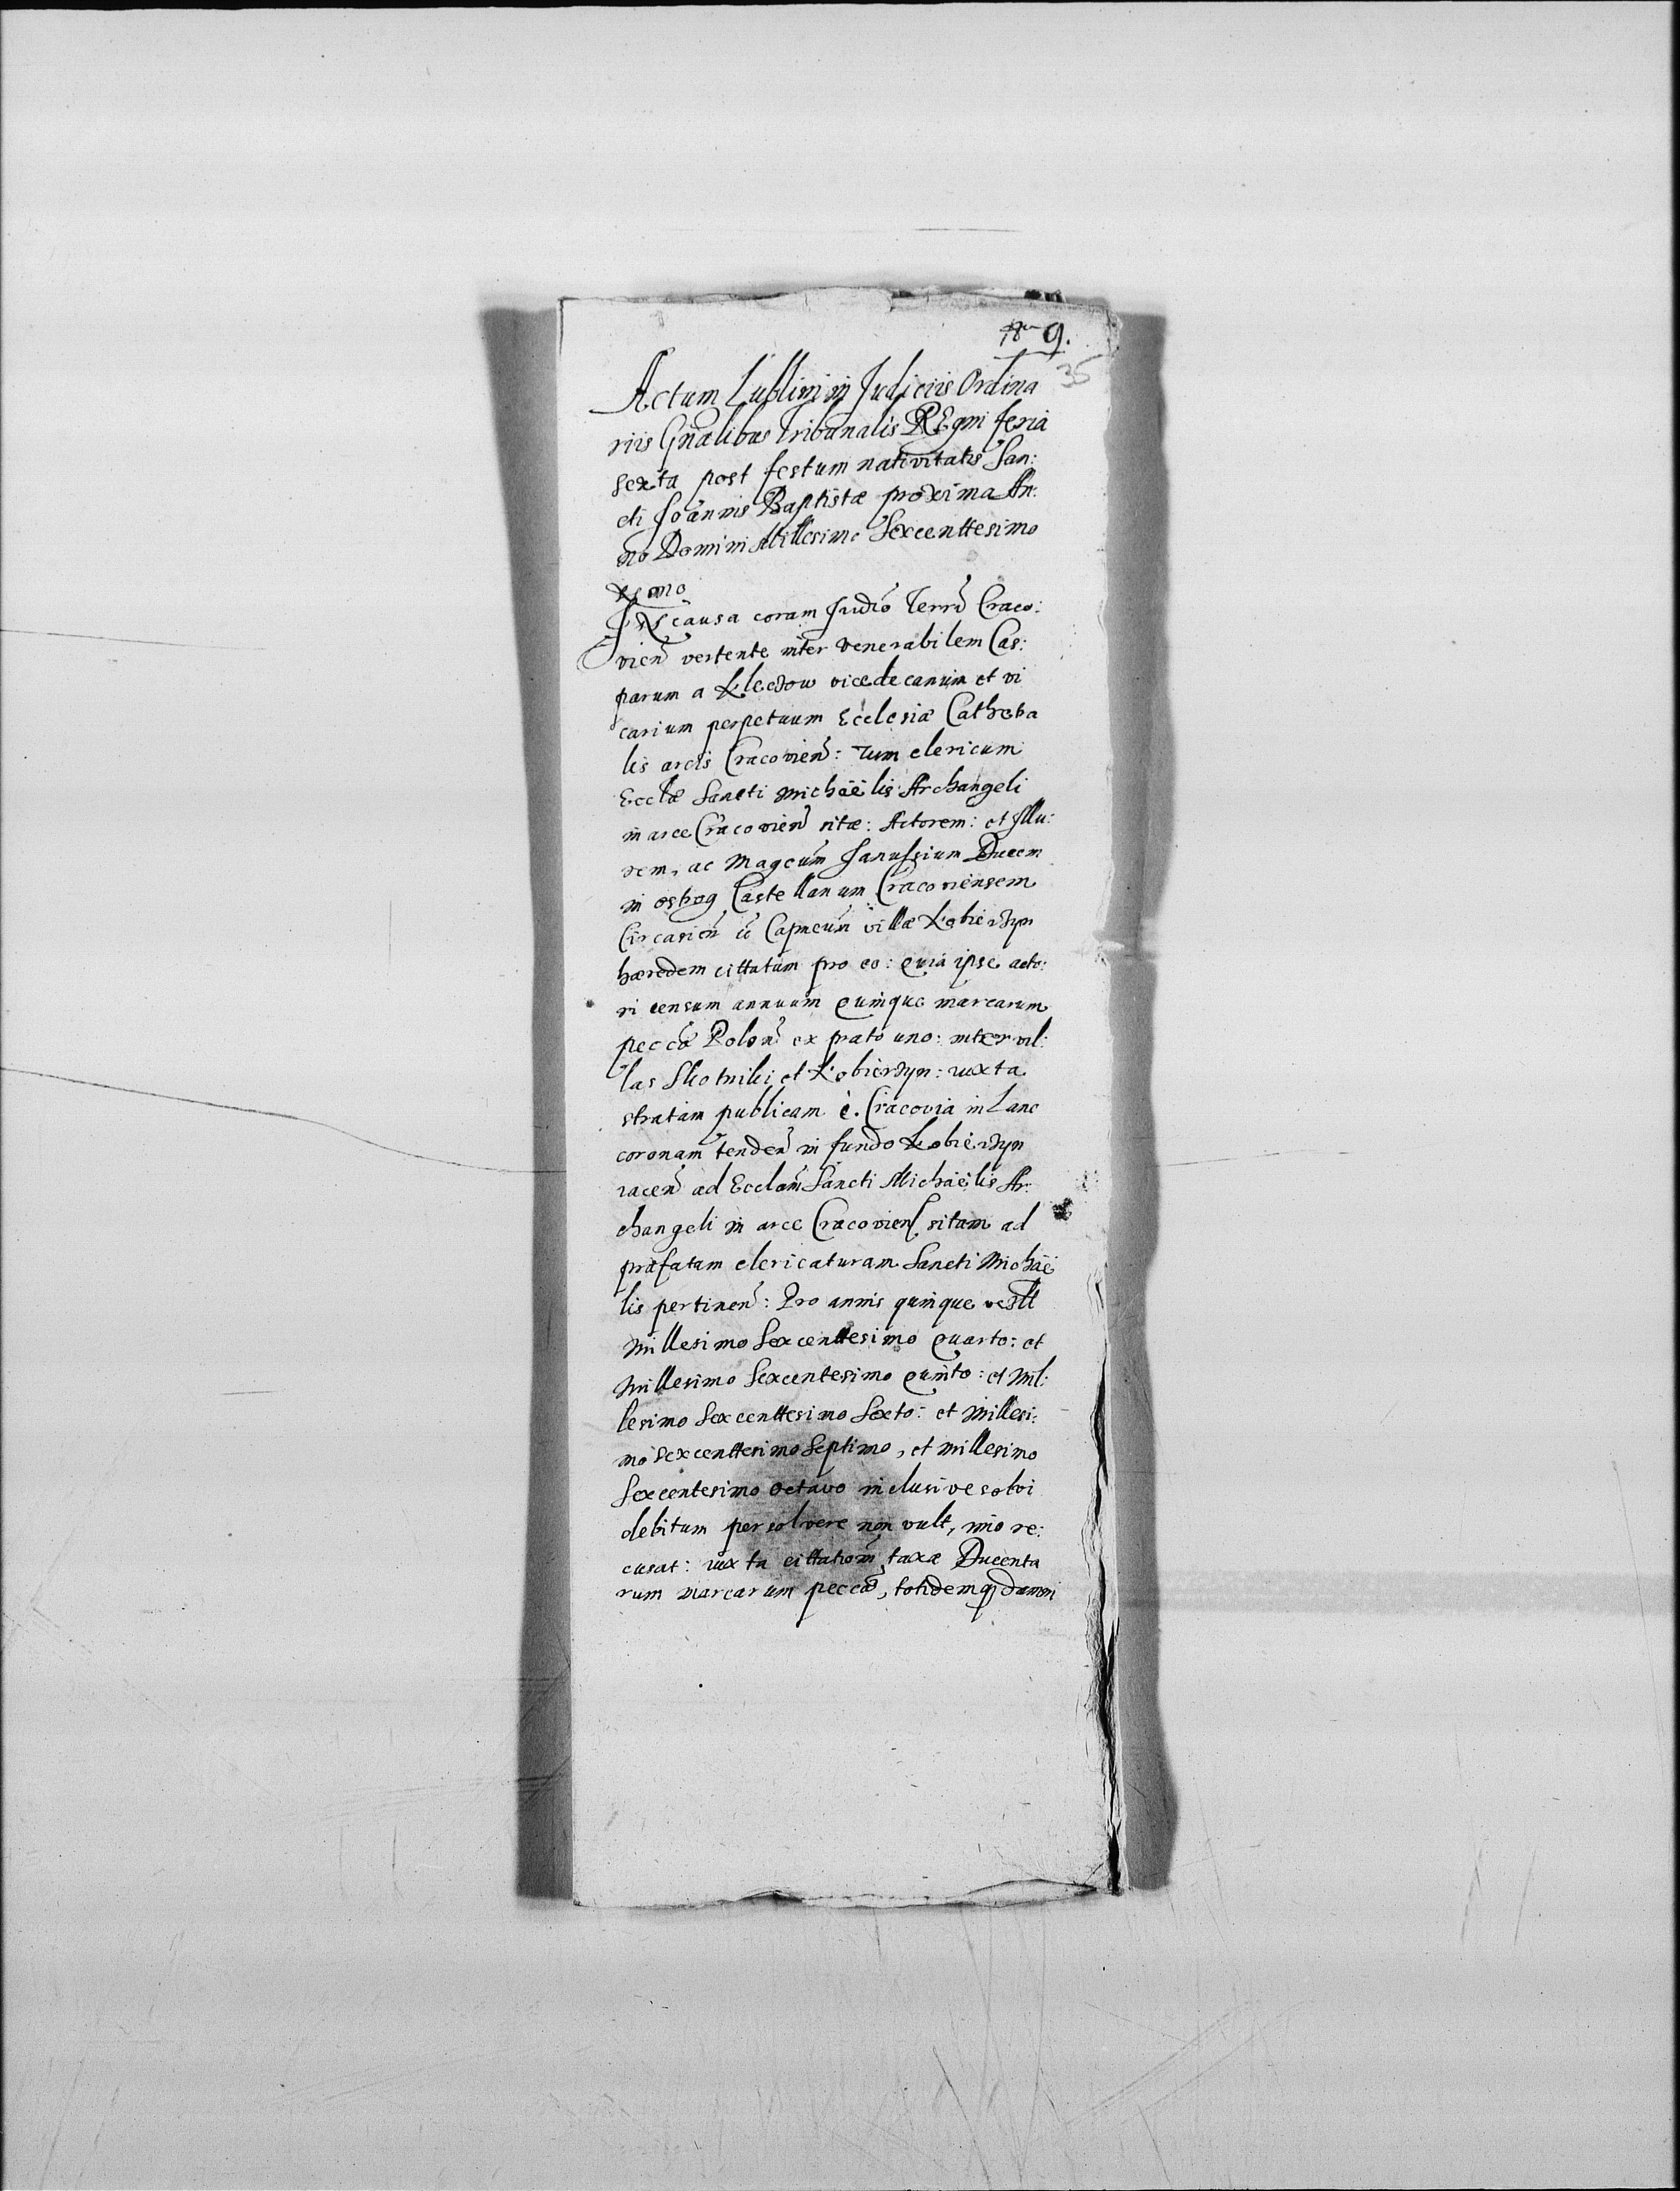 9.
35
Actum Lublini in Judiciis Ordina
riis Gnalibus Tribunalis REgni feria
sexta post festum nativitatis San:
cti Joannis Baptistæ proxima An:
no Domini Millesimo Sexcenttesimo
IN causa coram Judio Terrō Craco:
vieñ vertente inter venerabilem Cas:
parum a Kleczow vicedecanum et vi
carium perpetuum Ecclesiæ Cathedra
lis arcis Cracovień: Tum clericum
Ecclæ Sancti Michaëlis Archangeli
in arce Cracovień sitæ: Actorem: et Illu:
rem, ac Magcum Janussium Ducem
in ostrog Castellanum Cracoviensem
Circasień &c Capneum villæ Kobierzyn
hæredem cittatum pro eo: Quia ipse acto:
ri censum annuum Quinque marcarum
peccæ Poloñ ex prato uno: inter vil:
las Skotniki et Kobierzyn: iuxta
stratam publicam è. Cracovia in Lanc
coronam tendeñ in fundo Kobierzyn
iaceñ ad Ecclam Sancti Michaëlis Ar:
changeli in arce Cracovień sitam ad
præfatam clericaturam Sancti Michaë
lis pertineñ: Pro annis quinque vestt
Millesimo Sexcenttesimo Quarto: et
Millesimo Sexcentesimo Quinto: et Mil:
lesimo Sexcenttesimo Sexto: et Millesi:
mo Sexcenttesimo Septimo, et millesimo
Sexcentesimo octavo inclusive solvi
debitum persolvere non vult, imo re:
cusat: iuxta cittationem taxæ Ducenta
rum marcarum peccæ, totidemq damni